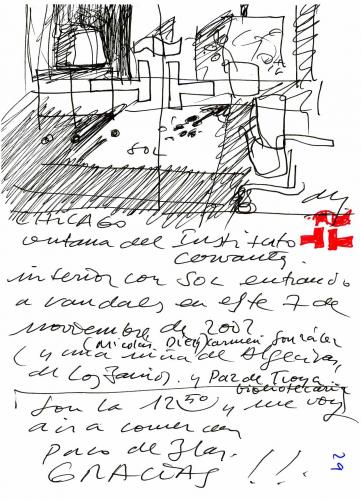 SOL
CHICAGO
ventana del Instituto
Cervantes.
interior con SOL entrando
a raudales en este 7 de
noviembre de 2002
(Nicolás Díez) Carmen González
(y una niña de Algeciras,
de Los Barrios). y Paz de Troya
bibliotecaria
Son la 12 50 y me voy
a ir a comer con
Paco de Blas.
GRACIAS !!.
29